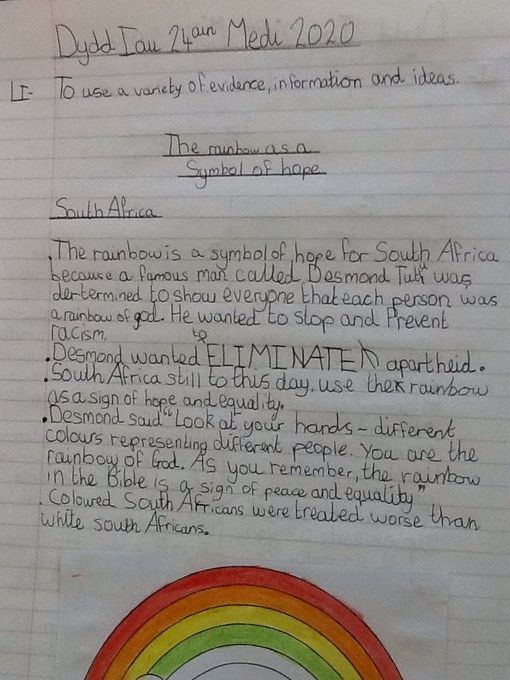 Dydd Iau 24ain Medi 2020
LI- To use a variety of evidence, information and ideas.
The rainbow as a
Symbol of hope
South Africa
. The rainbow is a symbol of hope for South Africa
because a famous man called Desmond Tutu was
dertermined to show everyone that each person was
a rainbow of god. He wanted to stop and Prevent
racism.
to
. Desmond wanted ELIMINATE apartheid.
. South Africa still to this day, use the rainbow
as a sign of hope and equality.
. Desmond said "Look at your hands - different
colours representing different people. You are the
rainbow of God. As you remember, the rainbow
in the Bible is a sign of peace and equality"
. Coloured South Africans were treated worse than
white south Africans.